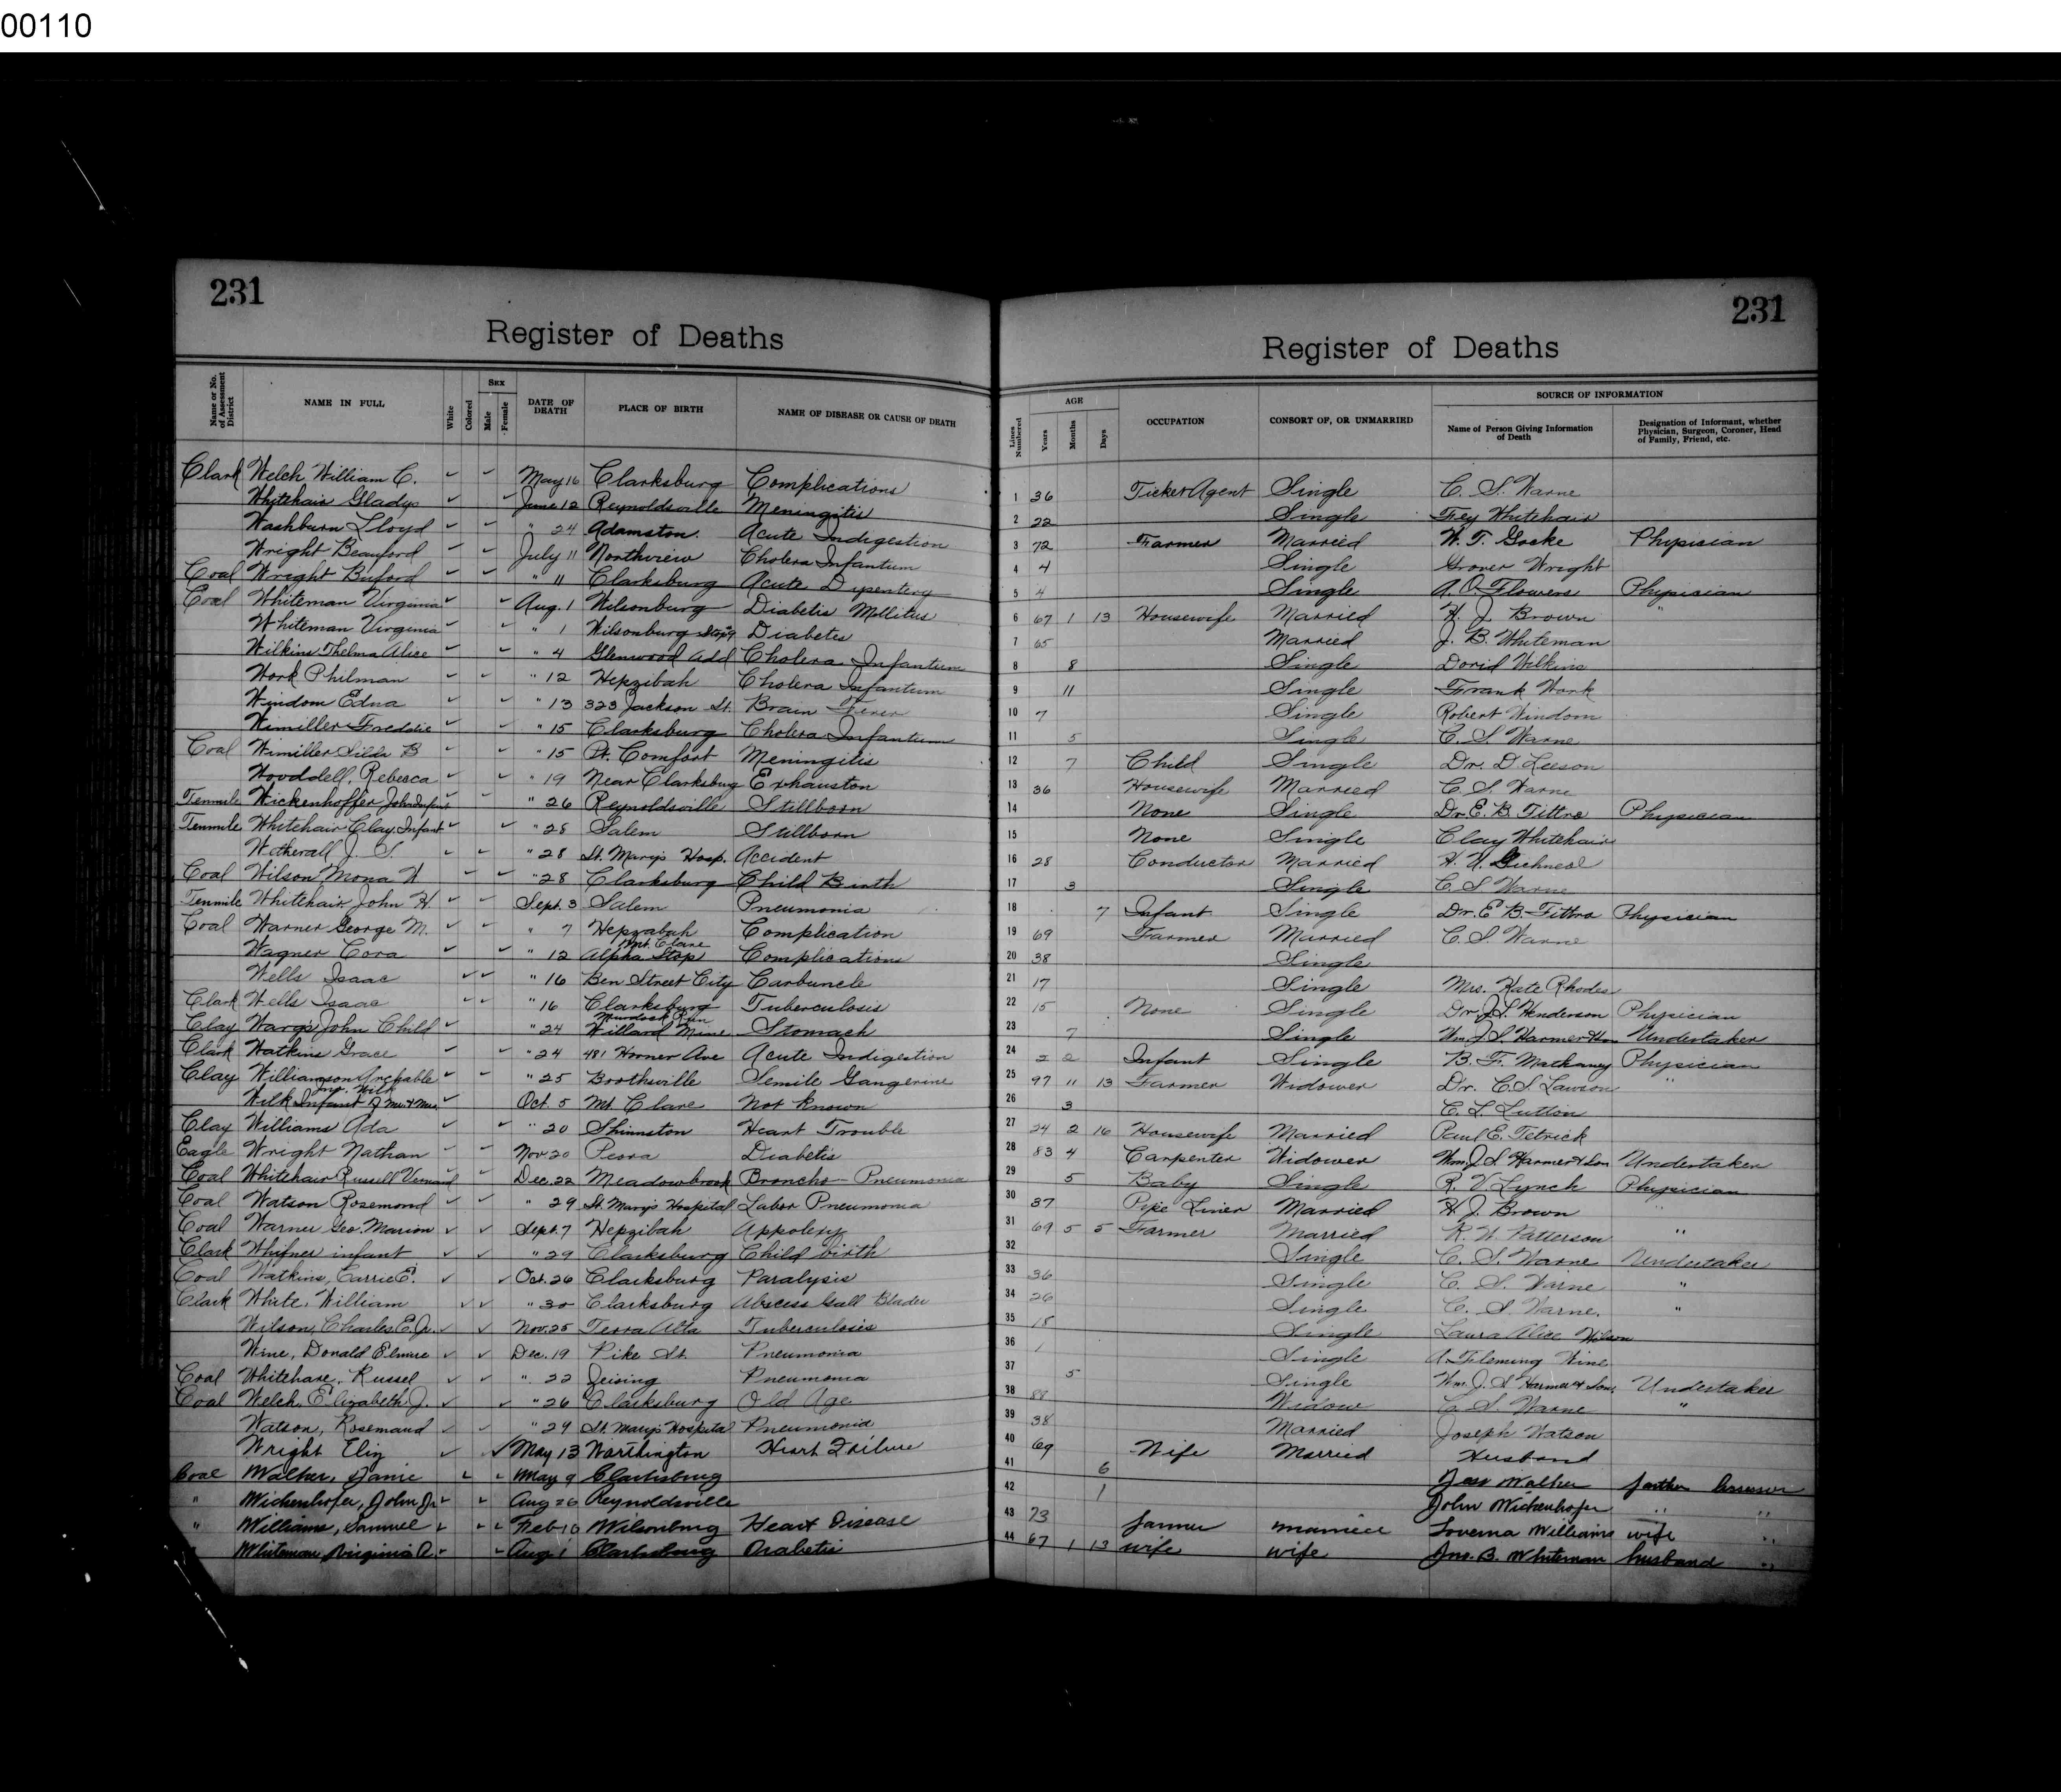 00110
231
Register of Deaths
231
Register of Deaths
Name or No. of Assessment District
NAME IN FULL
White
Colored
SEX
Male
Female
DATE OF DEATH
PLACE OF BIRTH
NAME OF DISEASE OR CAUSE OF DEATH
Lines Numbered
AGE
Years
Months
Days
OCCUPATION
CONSORT OF, OR UNMARRIED
SOURCE OF INFORMATION
Name of Person Giving Information of Death
Designation of Informant, whether Physician, Surgeon, Coroner, Head of Family, Friend, etc.
Clark Welch William C. ✓ ✓ May 16 Clarksburg Complications 1 36 Ticket Agent Single C. S. Warne
Whitehair Gladys ✓ ✓ June 12 Reynoldsville Meningitis 2 22 Single Fey Whitehair
Washburn Lloyd ✓ ✓ " 24 Adamston. Acute Indigestion 3 72 Farmer Married W. T. Gocke Physician
Wright Beauford ✓ ✓ July 11 Northview Cholera Infantum 4 4 Single Grover Wright
Coal Wright Buford ✓ ✓ " 11 Clarksburg Acute Dysentery 5 4 Single A. O. Flowers Physician
Coal Whiteman Virginia ✓ ✓ Aug. 1 Wilsonburg Diabetis Mellitus 6 67 1 13 Housewife Married H. J. Brown "
Whiteman Virginia ✓ ✓ " 1 Wilsonburg Diabetes 7 65 Married J. B. Whiteman
Wilkins Thelma Alice ✓ ✓ " 4 Glenwood Add Cholera Infantum 8 8 Single Dorid Wilkins
Work Philman ✓ ✓ " 12 Hepzibah Cholera Infantum 9 11 Single Frank Work
Windom Edna ✓ ✓ " 13 323 Jackson St. Brain Fever 10 7 Single Robert Windom
Wimiller Freddie ✓ ✓ " 15 Clarksburg Cholera Infantum 11 5 Single C. S. Warne
Coal Wimiller B ✓ ✓ " 15 Pt. Comfort Meningitis 12 7 Child Single Dr. D. Leeson
Wooddell, Rebecca ✓ ✓ " 19 Near Clarksburg Exhauston 13 36 Housewife Married C. S. Warne
Tenmile Wickenhoffer John Infant ✓ " 26 Reynoldsville Stillborn 14 None Single Dr. E. B. Fittro Physician
Tenmile Whitehair Clay. Infant ✓ ✓ " 28 Salem Stillborn 15 None Single Clay Whitehair
Wetherall J. S. ✓ ✓ " 28 St. Mary's Hosp. Accident 16 28 Conductor Married H. W.
Coal Wilson Mona W ✓ ✓ " 28 Clarksburg Child Birth 17 3 Single C. S Warne
Tenmile Whitehair John H ✓ ✓ Sept. 3 Salem Pneumonia 18 7 Infant Single Dr. E B. Fittro Physician
Coal Warner George M. ✓ ✓ " 7 Hepzabah Complication 19 69 Farmer Married C. S. Warne
Wagner Cora ✓ ✓ " 12 Alpha Stop Mt. Clare Complications 20 38 Single
Wells Isaac ✓ ✓ " 16 Ben Street City Carbuncle 21 17 Single Mrs. Kate Rhodes
Clark Wells Isaac ✓ ✓ " 16 Clarksburg Tuberculosis 22 15 None Single Dr. J. S. Henderson Physician
Clay Wargs John Child ✓ " 24 Murdock Run Willard Mine Stomach 23 7 Single Wm. J. S. Harmer & Son Undertaker
Clark Watkins Grace ✓ ✓ " 24 481 Horner Ave Acute Indigestion 24 2 2 Infant Single B. F. Matheney Physician
Clay Williamson Archable ✓ ✓ " 25 Boothsville Semile Gangerine 25 97 11 13 Farmer Widower Dr. C. S. Lawson "
Wilk Infant of Mr. & Mrs. Wilk ✓ Oct. 5 Mt. Clare Not Known 26 3 C. L. Sutton
Clay Williams Ada ✓ ✓ " 20 Shinnston Heart Trouble 27 24 2 16 Housewife Married Paul E. Tetrick
Eagle Wright Nathan ✓ ✓ Nov 20 Peora Diabetis 28 83 4 Carpenter Widower Wm. J. S. Harmer & Son Undertaker
Coal Whitehair Russell Vernard ✓ ✓ Dec. 22 Meadowbrook Broncho-Pneumonia 29 5 Baby Single R. V. Lynch Physician
Coal Watson Rosemond ✓ ✓ " 29 St. Mary's Hospital Labor Pneumonia 30 37 Pipe Liner Married H. J. Brown "
Coal Warner Geo. Marion ✓ ✓ Sept. 7 Hepzibah Appolexy 31 69 5 5 Farmer Married R. W. Patterson "
Clark Whifner infant ✓ ✓ " 29 Clarksburg Child birth 32 Single C. S. Warne Undertaker
Coal Watkins, Carrie E. ✓ ✓ Oct. 26 Clarksburg Paralysis 33 36 Single C. S. Warne "
Clark White, William ✓ ✓ " 30 Clarksburg Abscess Gall Blader 34 26 Single C. S. Warne. "
Wilson, Charles E. Jr. ✓ ✓ Nov. 25 Terra Alta Tuberculosis 35 18 Single Laura Alice Wilson
Wine, Donald Elmire ✓ ✓ Dec. 19 Pike St. Pneumonia 36 1 Single A. Fleming Wine
Coal Whitehare, Russel ✓ ✓ " 22 Jeising Pneumonia 37 5 Single Wm. J. S Harmer & Son. Undertaker
Coal Welch, Elizabeth J. ✓ ✓ " 26 Clarksburg Old Age 38 88 Widow C. S. Warne "
Watson, Rosemaud ✓ ✓ " 29 St. Mary's Hospital Pneumonia 39 38 Married Joseph Watson
Wright Eliz ✓ ✓ May 13 Worthington Heart Failure 40 69 Wife Married Husband
Coal Walker, Janie ✓ ✓ May 9 Clarksburg 41 6 Jess Walker father Assessor
" Wickenhofer, John Jr ✓ ✓ Aug 26 Reynoldsville 42 1 John Wickenhofer " "
" Williams, Samuel ✓ ✓ Feb 10 Wilsonburg Heart Disease 43 73 farmer married Loverna Williams wife "
" Whiteman Virginia A. ✓ ✓ Aug 1 Clarksburg Diabetis 44 67 1 13 wife wife Jno. B. Whiteman husband "